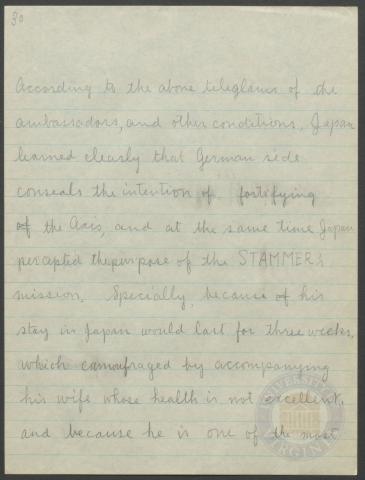 30
According to the above teleglams of the
ambassadors, and other conditions, Japan
learned clearly that German side
conseals the intention of fortifying
of the Axis, and at the same time Japan
percepted the purpose of the STAMMER's
mission. Specially, because of his
stay in Japan would last for three weeks,
which camoufraged by accompanying
his wife whose health is not excellent,
and because he is one of the most
UNIVERSITY
VIRGINIA